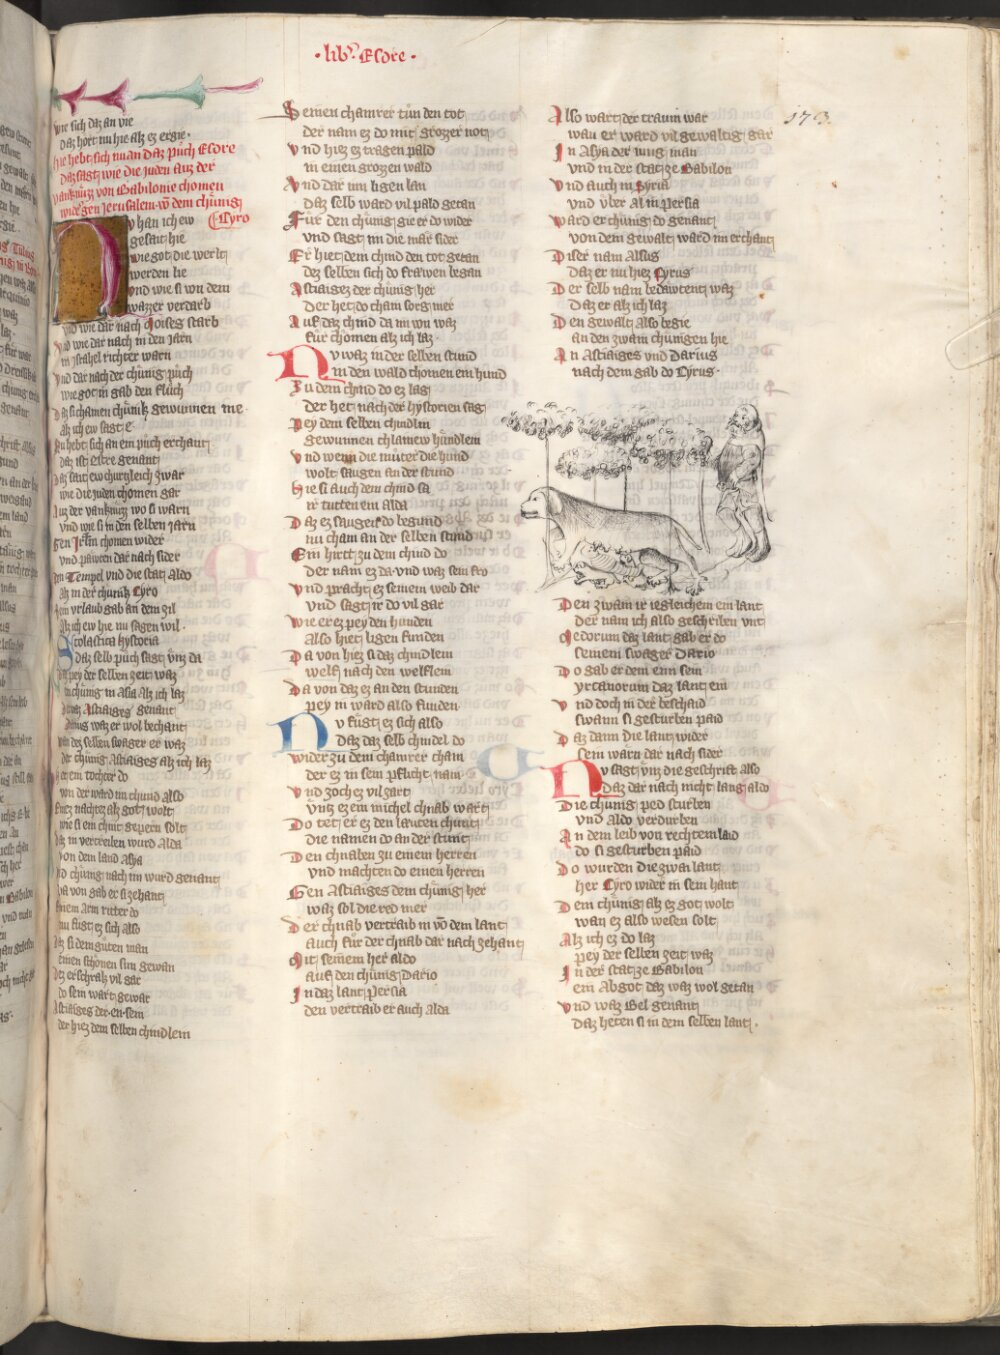 · lib᷒ Esdre ·
173
wie sich daz an vie
daz hort nu hie alz ez ergie·
hie hebt sich nu an daz půch Esdre
daz sagt wie die juden auz der
vanknüzz von Babilonie chomen
wider gen Jerusalem võ dem chünig
Cyro
NV han ich ew
gesait hie
wie got die werlt
werden lie
vnd wie si von dem
wazzer verdarb
vnd wie dar nach Moises starb
vnd wie dar nach in den jarn
in jsrahel richter warn
vnd dar nach der chünig půch
wie got in gab den flůch
daz si chamen chünik gewunnen me
alz ich ew sagt e
Nu hebt sich an ein půch erchant
daz ist Esdre genant
daz sait ew churczleich zwar
wie die juden chomen gar
auz der vanknuzz wo si warn
vnd wie si in den selben jarn
gen Jrlm chomen wider
vnd pawten dar nach sider
den Tempel vnd die stat aldo
alz in der chunik Cyro
dem vrlaub gab an dem zil
alz ich ew hie nu sagen wil·
Scolastica hystoria
daz selb půch sagt vnz da
daz pey der selben zeit waz
ein chünig in Asia alz ich laz
der waz Astiaiges genant
Darius waz er wol bechant
wan dez selben swager er waz
der chünig Astiaiges alz ich laz
het ein tochter do
von der ward im chund also
einez nachtez alz got wolt
wie si ein chint gepern solt
daz in vertreiben wurd alda
von dem land Asya
vnd chünig nach im wurd genant
da von gab er si zehant
einem arm ritter do
nu fügt ez sich also
daz si dem güten man
einen schönen sun gewan
dez erschrakt vil gar
do sein wart gewar
Astiaiges der en sem
der hiez dem selben chindlein
Seinen chamrer tün den tot
der nam ez do mit grozzer not
vnd hiez ez tragen pald
in einen grozzen wald
vnd dar inn ligen lan
daz selb ward vil pald getan
Für den chünig gie er do wider
vnd sagt im die mär sider
Er hiet dem chind den tot getan
dez selben sich do frawen began
Astiaigez der chünig her
der het do cham sorg mer
auf daz chind da im von waz
für chomen alz ich laz·
NV waz in der selben stund
in den wald chomen ein hund
Zu dem chind do ez lag
der het nach der hystorien sag
Pey dem selben chindlin
gewunnen chlainew hündlein
vnd wenn die müter die hund
wolt saugen an der stund
hie si auch dem chind sa
ir tutten ein alda
daz ez saugen do begund
nu cham an der selben stund
Ein hirtt zu dem chind do
der nam ez da· vnd waz sein fro
vnd pracht ez seinem weib dar
vnd sagt ir do vil gar
wie er ez pey den hunden
also hiet ligen funden
Da von hiez si daz chindlein
welf nach den welflein
Da von daz ez an den stunden
pey in ward also funden
NV fügt ez sich also
daz daz selb chindel do
wider zu dem chamrer cham
der ez in sein pflicht nam
vnd zoch ez vil zart
vntz ez ein michel chnab wart
Do tet er ez den lauten chunt
die namen do an der stunt
Den chnaben zu einem herren
vnd machten do einen herren
Gen Astiaiges dem chünig her
waz sol die red mer
Der chnab vertraib in võ dem lant
auch für der chnab dar nach zehant
Mit seinem her aldo
auf den chünig Dario
In daz lant Persia
den vertraib er auch alda
Also wart der traum war
wan er ward vil gewaltig gar
In Asya der jung man
vnd in der stat ze Babilon
vnd auch in Syria
vnd vber al in Persia
ward er chünig do genant
von dem gewalt ward im erchant
Diser nam alsus
daz er nu hiez Cyrus
Der selb nam bedawtent waz
daz er alz ich laz
Den gewalt also begie
an den zwain chünigen hie
An Astiaiges vnd Darius
nach dem gab do Cyrus·
Den zwain ir iegleichem ein lant
der nam ich also geschriben vint
Medorum daz lant gab er do
seinem swager Dario
Do gab er dem enn sein
yrcanorum daz lant ein
vnd doch in der beschaid
swann si gesturben paid
Daz dann die lant wider
sein wärn dar nach sider
NV sagt vnz die geschrift also
daz dar nach nicht lang aldo
Die chünig ped sturben
vnd aldo verdurben
An dem leib von rechtem laid
do si gesturben paid
Do wurden die zwai lant
her Cyro wider in sein hant
Dem chünig alz ez got wolt
wan ez also wesen solt
Alz ich ez do laz
pey der selben zeit waz
In der stat ze Babilon
ein abgot daz waz wol getan
vnd waz Bel genant
daz heten si in dem selben lant·